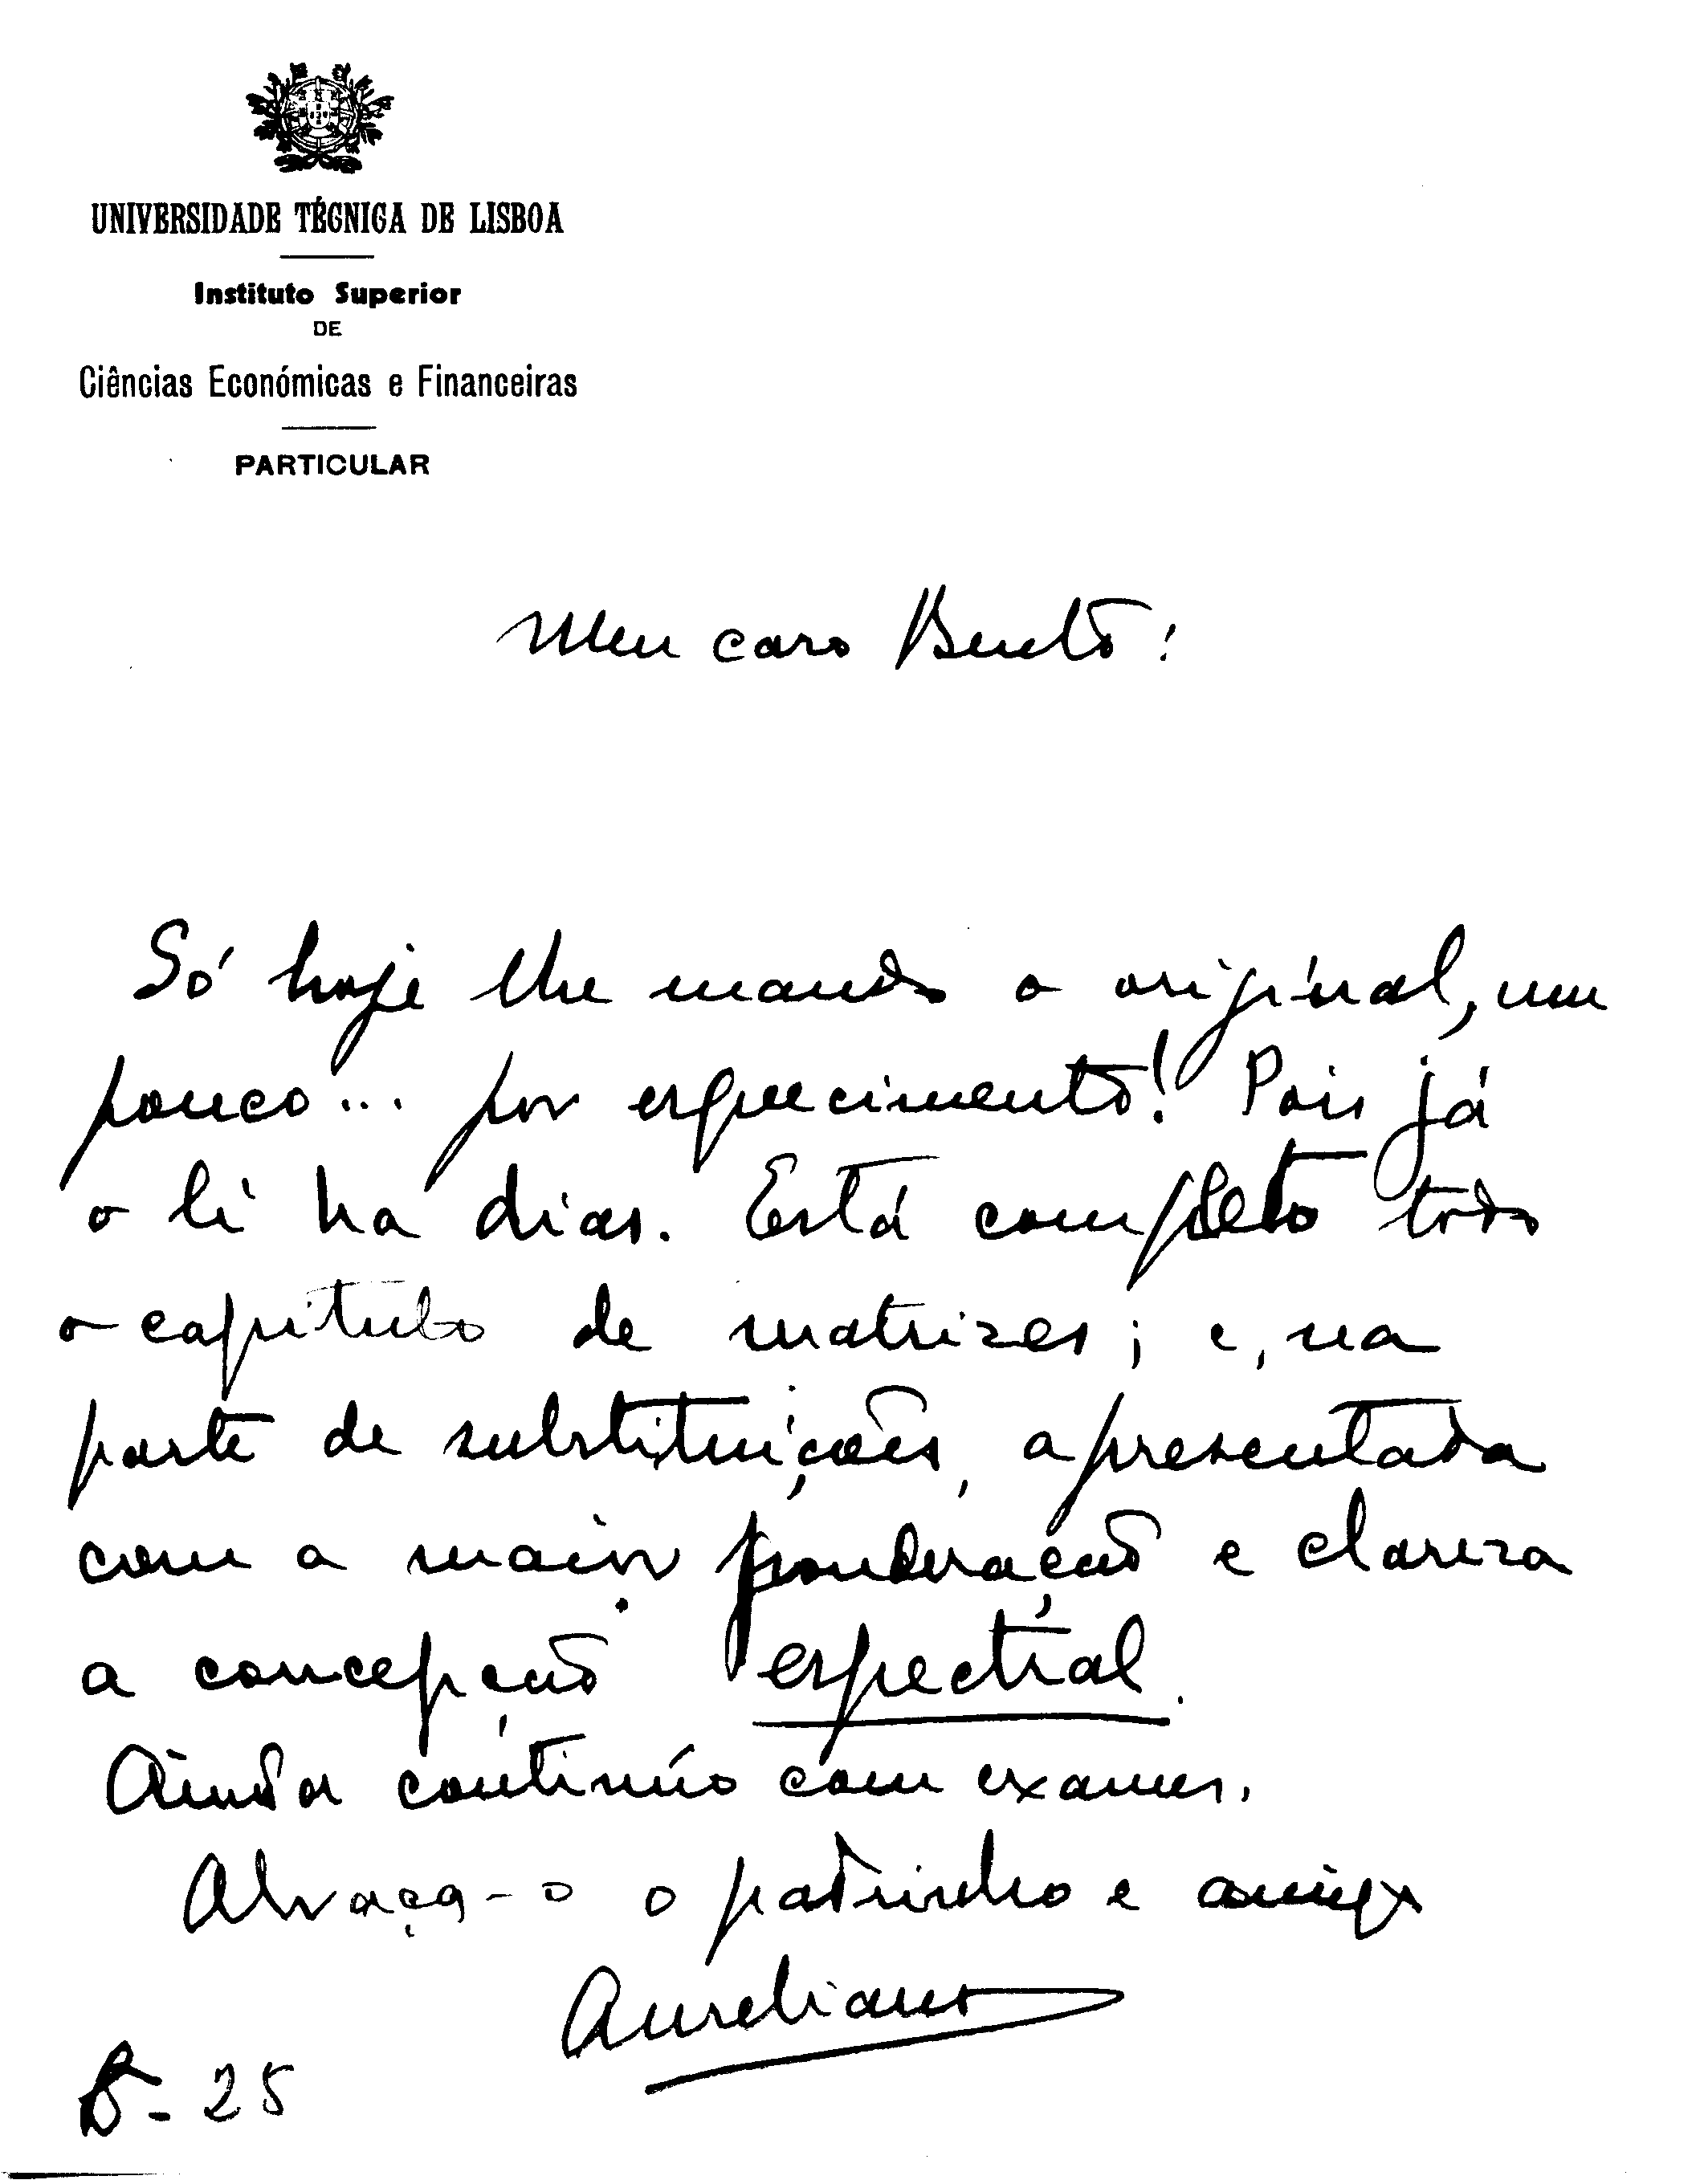 UNIVERSIDADE TÉCNICA DE LISBOA
Instituto Superior
DE
Ciências Económicas e Financeiras
PARTICULAR
Meu caro Bento:
Só hoje lhe mando o original, um
pouco... por esquecimento! Pois já
o li ha dias. Está completo todo
o capítulo de matrizes; e, na
parte de substituições, apresentada
com a maior ponderação e clareza
a concepção espectral.
Ainda continúo com exames.
Abraça-o o padrinho e amigo
Aureliano
25